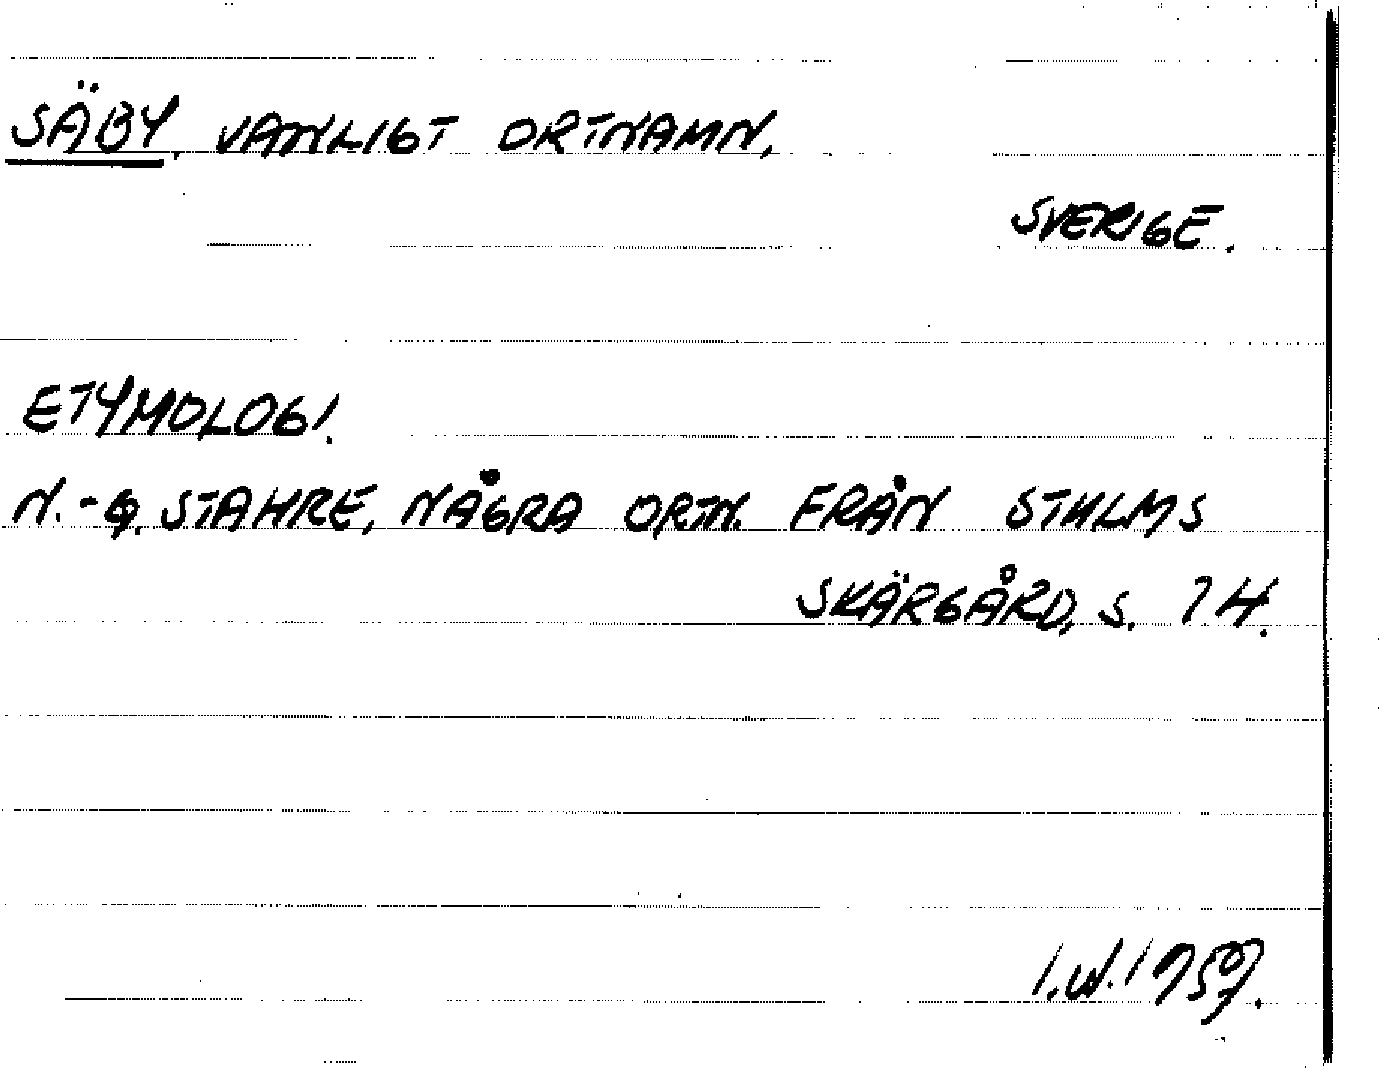 SÄBY, VANLIGT ORTNAMN,
SVERIGE.
ETYMOLOGI.
N.-G. STAHRE, NÅGRA ORTN. FRÅN STHLMS
SKÄRGÅRD, S. 74.
I.W. 1959.